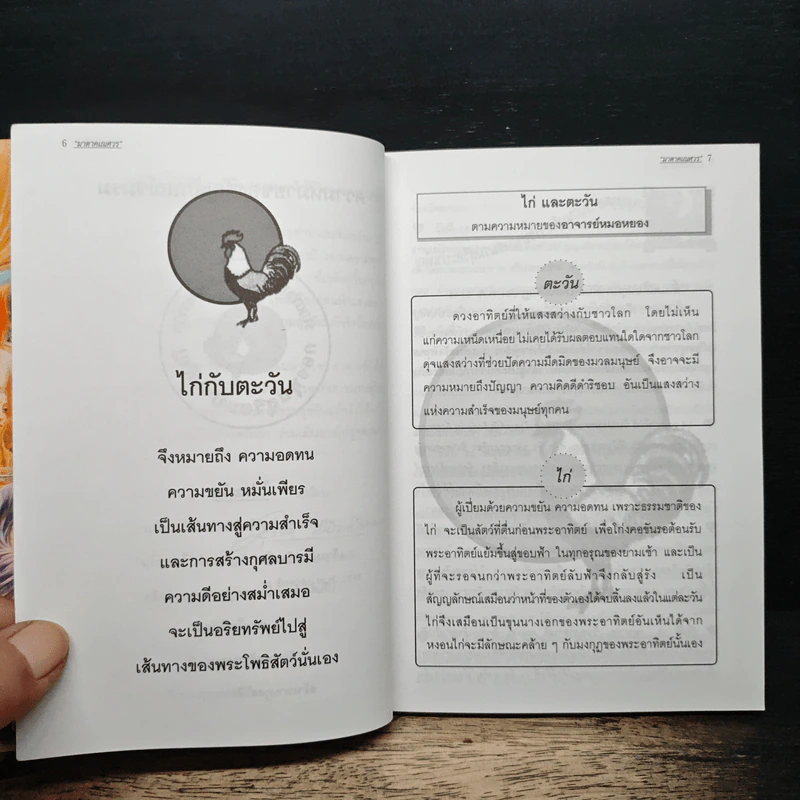 6 "มาตาคเณศวร"
ไก่กับตะวัน
จึงหมายถึง ความอดทน
ความขยัน หมั่นเพียร
เป็นเส้นทางสู่ความสำเร็จ
และการสร้างกุศลบารมี
ความดีอย่างสม่ำเสมอ
จะเป็นอริยทรัพย์ไปสู่
เส้นทางของพระโพธิสัตว์นั่นเอง
"มาตาคเณศวร" 7
ไก่ และตะวัน
ตามความหมายของอาจารย์หมอหยอง
ตะวัน
ดวงอาทิตย์ที่ให้แสงสว่างกับชาวโลก โดยไม่เห็น
แก่ความเหน็ดเหนื่อย ไม่เคยได้รับผลตอบแทนใดใดจากชาวโลก
ดุจแสงสว่างที่ช่วยปัดความมืดมิดของมวลมนุษย์ จึงอาจจะมี
ความหมายถึงปัญญา ความคิดดีดำริชอบ อันเป็นแสงสว่าง
แห่งความสำเร็จของมนุษย์ทุกคน
ไก่
ผู้เปี่ยมด้วยความขยัน ความอดทน เพราะธรรมชาติของ
ไก่ จะเป็นสัตว์ที่ตื่นก่อนพระอาทิตย์ เพื่อโก่งคอขันรอต้อนรับ
พระอาทิตย์แย้มขึ้นสู่ขอบฟ้า ในทุกอรุณของยามเช้า และเป็น
ผู้ที่จะรอจนกว่าพระอาทิตย์ลับฟ้าจึงกลับสู่รัง เป็น
สัญญลักษณ์เสมือนว่าหน้าที่ของตัวเองได้จบสิ้นลงแล้วในแต่ละวัน
ไก่จึงเสมือนเป็นขุนนางเอกของพระอาทิตย์อันเห็นได้จาก
หงอนไก่จะมีลักษณะคล้าย ๆ กับมงกุฎของพระอาทิตย์นั้นเอง